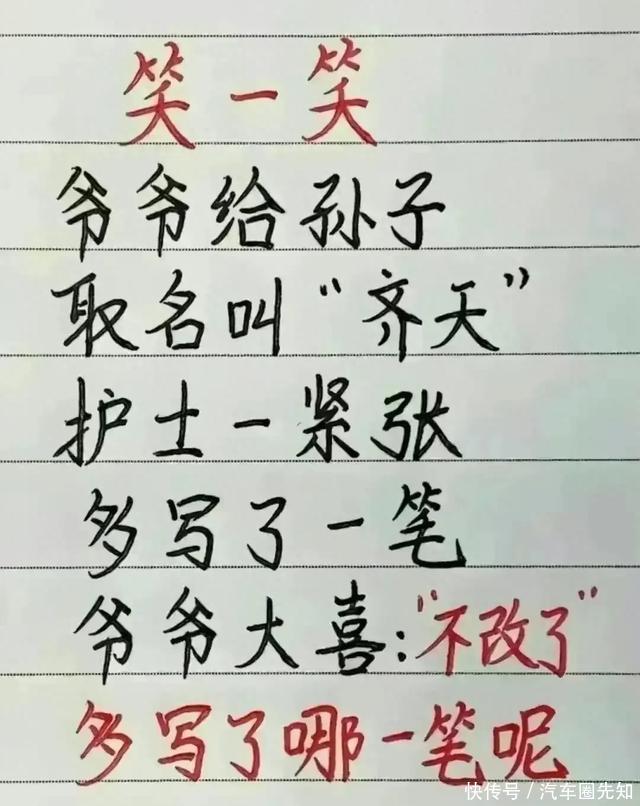 笑一笑
爷爷给孙子
取名叫“齐天”
护士一紧张
多写了一笔
爷爷大喜:“不改了”
多写了哪一笔呢
快传号/汽车圈先知